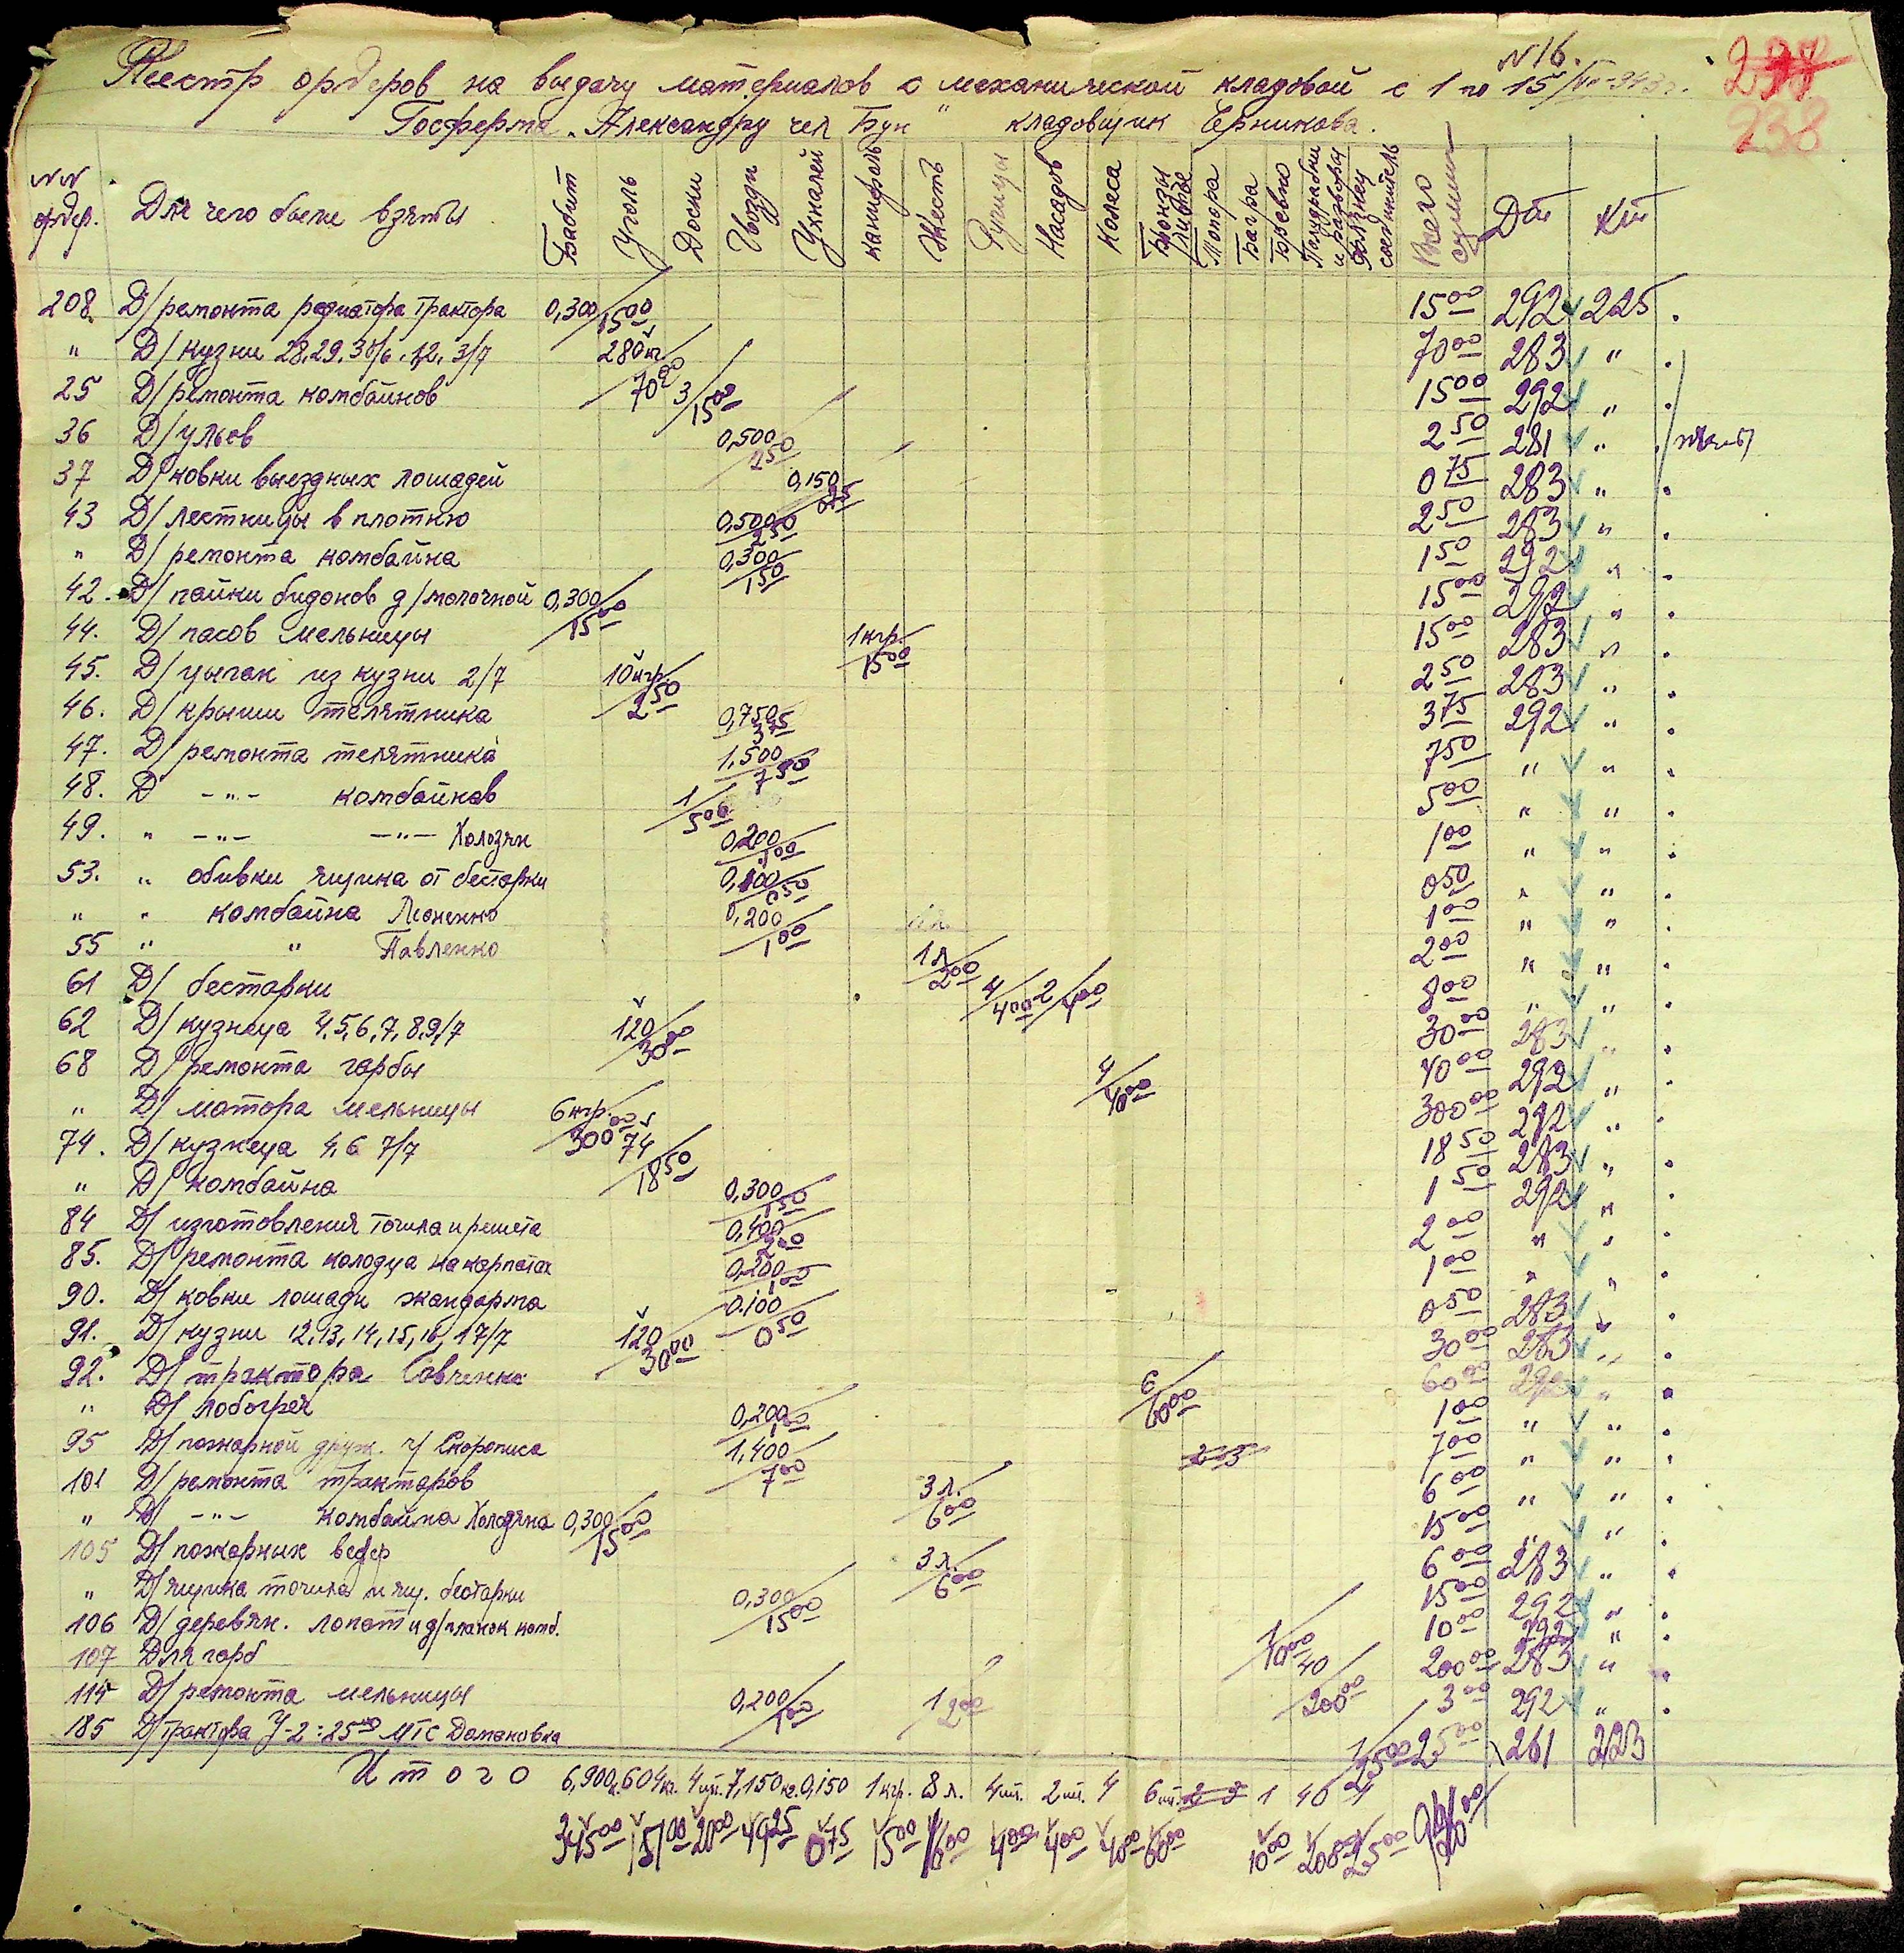 N16.
237
238
Реестр ордеров на выдачу материалов с механической кладовой с 1 по 15/VII-943 г.
Госферма „Александру чел Бун" кладовщик Ерникова.
NN ордер. Для чего были взяты Бабит Уголь Доски Гвозди Ухналей канифоль Жесть Ручицы Насадов Колеса Бронзы литье Мотора Багра Бревно Полудрабки и разворы соединитель Всего сумма Дт Кт
208. Д/ремонта радиатора трактора 0,300/1500 1500 292 225.
" Д/кузни 28.29.30/6. 1,2, 3/7 280кг/7000 7000 283 "
25 Д/ремонта комбайнов 3/1500 1500 292 "
36 Д/ульов 0,500/250 250 281 "
37 Д/ковки выездных лошадей 0,150/075 075 283 "
43 Д/лестницы в плотню 0,500/250 250 283 "
" Д/ремонта комбайна 0,300/150 150 292 "
42. Д/пайки бидонов д/молочной 0,300/1500 1500 292 "
44. Д/пасов мельницы 1кгр./1500 1500 283 "
45. Д/цыган из кузни 2/7 10кгр/250 250 283 "
46. Д/крыши телятника 0,750/375 375 292 "
47. Д/ремонта телятника 1,500/750 750 " "
48. Д -"- комбайнов 1/500 500 " "
49. " -"- -"- Колозян 0,200/100 100 " "
53. " обивки ящика от бестарки 0,100/050 050 " "
" " комбайна Леоненко 0,200/100 100 " "
55 " " Павленко 1л/200 200 " "
61 Д/ бестарки 4/400 2/400 800 " "
62 Д/кузнеца 4,5,6,7,8,9/7 120/3000 3000 283 "
68 Д/ремонта гарбы 4/4000 4000 292 "
" Д/мотора мельницы 6кгр./30000 30000 292 "
74. Д/кузнеца 4,6 7/7 74/1850 1850 283 "
" Д/комбайна 0,300/150 150 292 "
84 Д/изготовления точила и решета 0,400/200 200 " "
85. Д/ремонта колодца на карпатах 0,200/100 100 " "
90. Д/ковки лошади жандарма 0.100/050 050 283 "
91. Д/кузни 12,13,14,15,16,17/7 120/3000 3000 283 "
92. Д/трактора Савченко 6/6000 6000 292 "
" Д/лобогрея 0,200/100 100 " "
95 Д/пожарной друж. ч/Скорописа 1,400/700 2 3 700 " "
101 Д/ремонта тракторов 3л./600 600 " "
" Д/ -"- комбайна Колозяна 0,300/1500 1500 " "
105 Д/пожарных ведер 3л./600 600 283 "
" Д/ящика точила и ящ. бестарки 0,300/1500 1500 292 "
106 Д/деревян. лопат и д/планок комб. 1/1000 1000 292 "
107 Для гарб 40/20000 20000 283 "
114 Д/ремонта мельницы 0,200/100 1/200 300 292 "
185 Д/трактора У-2: 25 МТС Домановка 1/2500 2500 261 223
Итого 6,900 604кг. 4шт. 7,150кг. 0,150 1кгр. 8 л. 4шт. 2шт. 4 6шт. 1 40 1
34500 15100 2000 4925 075 1500 1600 400 400 4000 6000 1000 20000 2500